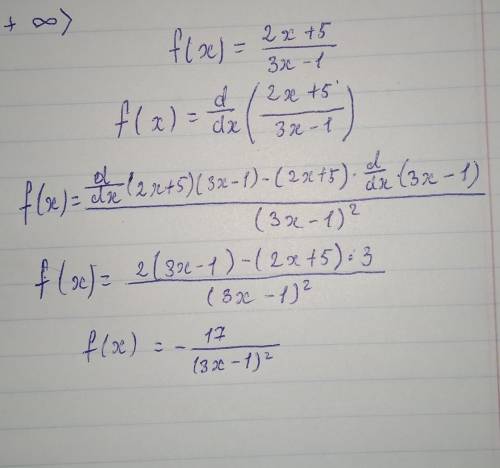 + ∞)
f(x) = (2x+5)/(3x-1)
f(x) = d/dx ((2x+5)/(3x-1))
f(x) = (d/dx (2x+5)(3x-1) - (2x+5) · d/dx · (3x-1))/((3x-1)²)
f(x) = (2(3x-1) - (2x+5) · 3)/((3x-1)²)
f(x) = - 17/((3x-1)²)